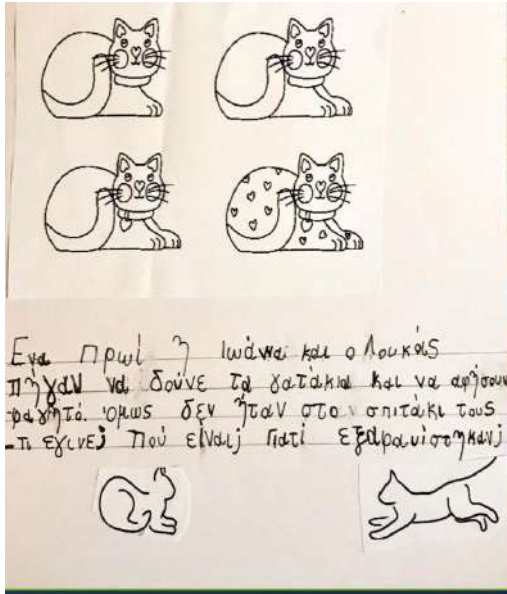 Ενα πρωί η Ιωάννα και ο Λουκάς
πήγαν να δούνε τα γατάκια και να αφήσουν
φαγητό. όμως δεν ήταν στο σπιτάκι τους
-τι εγινε; Πού είναι; Γιατί εξαφανίστηκαν;